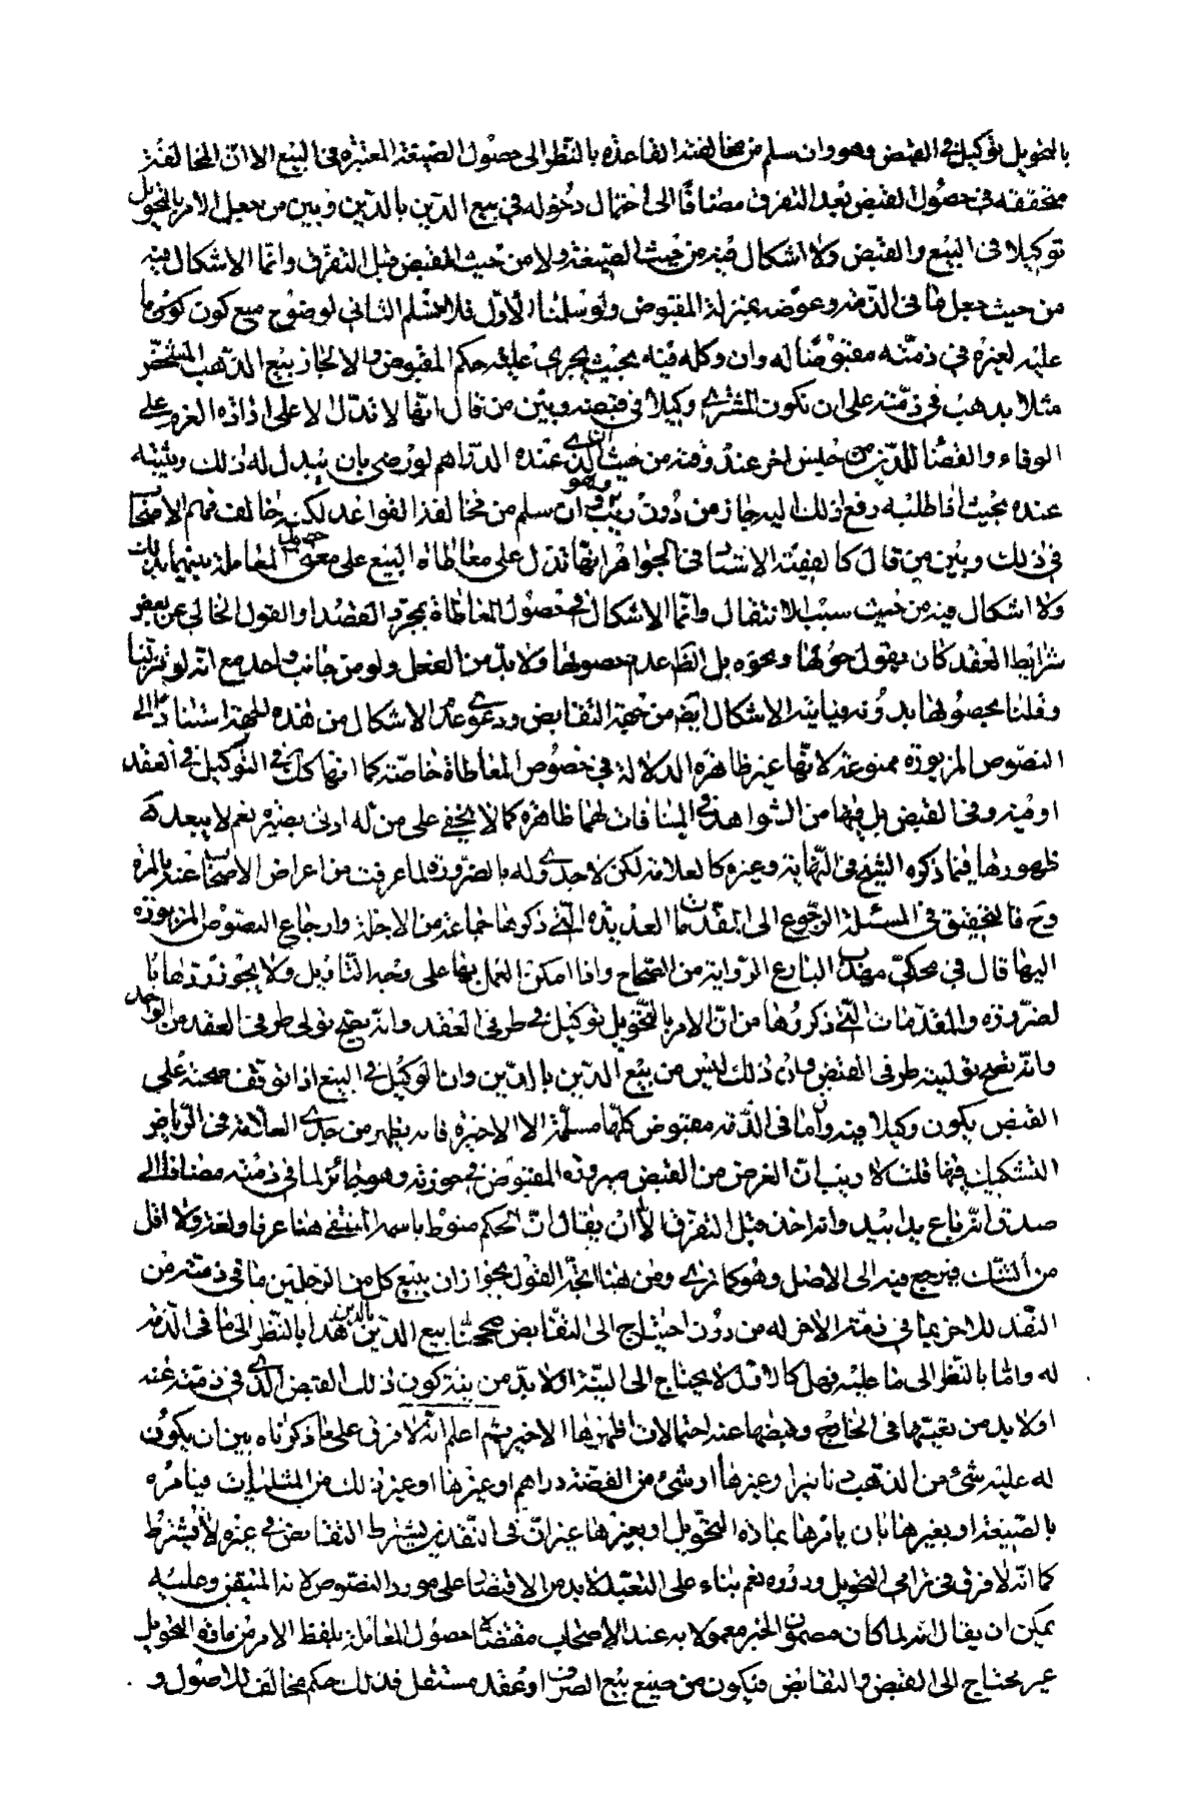 بالتحويل توكيل فى القبض وهو وان سلم من مخالفته القاعدة بالنظر الى حصول الصيغة المعتبرة فى البيع الا ان المخالفة
متحققة فى حصول القبض بعد التفرق مضافا الى احتمال دخوله فى بيع الدين بالدين وبين من جعل الامر بالتحويل
توكيلا فى البيع والقبض ولا اشكال فيه من حيث الصيغة ولا من حيث القبض قبل التفرق وانما الاشكال فيه
من حيث جعل ما فى الذمة وعوضه بمنزلة المقبوض ولو سلمنا الاول فلا نسلم الثانى لوضوح منع كون كون ما
عليه لغيره فى ذمته مقبوضا له وان وكله فيه بحيث يجرى عليه حكم المقبوض والا لجاز بيع الذهب المستحضر
مثلا بذهب فى ذمته على ان يكون المشترى وكيلا فى قبضه وبين من قال انها لا تدل الا على ارادة العزم على
الوفاء والقضاء للدين من جنس اخر عند وقته من حيث ان الذى عنده الدراهم لو رضى بان يبدل له ذلك ويثبته
عنده بحيث اذا طلبه رفع ذلك اليه جاز من دون ريب وهو وان سلم من مخالفة القواعد لكنه خالف فهم الاصحاب
فى ذلك وبين من قال كالفقيه الاستاد فى الجواهر انها تدل على معاطاة البيع على معنى حصول المعاملة بينهما بذلك
ولا اشكال فيه من حيث سبب الانتقال وانما الاشكال فى حصول المعاطاة بمجرد القصد والقول الخالى عن بعض
شرايط العقد كان يقول حولها ونحوه بل الظ عدم حصولها ولا بد من الفعل ولو من جانب واحد مع انه لو تنزلنا
وقلنا بحصولها بدونه فيأتيه الاشكال ايضا من جهة التقابض ودعوى عدم الاشكال من هذه الجهة استنادا الى
النصوص المزبورة ممنوعة لانها غير ظاهرة الدلالة فى خصوص المعاطاة خاصة كما انها كك فى التوكيل فى العقد
او فيه وفى القبض بل فيها من الشواهد فى المنافات لهما ظاهرة كما لا يخفى على من له ادنى بصيرة نعم لا يبعد
ظهورها فيما ذكره الشيخ فى النهاية وغيره كالعلامة لكن لا جدوى له بالضرورة لما عرفت من اعراض الاصحاب عنه بالمرة
وح فالتحقيق فى المسئلة الرجوع الى المقدمات العديدة التى ذكرها جماعة من الاجلة وارجاع النصوص المزبورة
اليها قال فى محكى مهذب البارع الرواية من الصحاح واذا امكن العمل بها على وجه التأويل ولا يجوز ردها بالـ
لضرورة والمقدمات التى ذكروها من ان الامر بالتحويل توكيل فى طرفى العقد وانه يصح تولى طرفى العقد من الواحد
وانه يصح توليته طرفى القبض وان ذلك ليس من بيع الدين بالدين وان التوكيل فى البيع اذا توقف صحته على
القبض يكون وكيلا فيه وان ما فى الذمة مقبوض كلها مسلمة الا الاخيرة فانه يظهر من جدى العلامة فى الرياض
التشكيك فيها قلت لا ريب ان الغرض من القبض صيرورة المقبوض فى حوزته وهو حائز لما فى ذمته مضافا الى
صدق انه باع يدا بيد وانه اخذ مثل التفرق الا ان يقال ان الحكم منوط باسمه المنتفى هنا عرفا ولغة ولا اقل
من الشك فيرجع فيه الى الاصل وهو كما ترى ومن هنا اتجه القول بجواز ان يبيع كل من الرجلين ما فى ذمته من
النقد للاخر بما فى ذمة الاخر له من دون احتياج الى التقابض صححنا بيع الدين بالدين هذا بالنظر الى ما فى الذمة
له واما بالنظر الى ما عليه فهل كالاول لا يحتاج الى النية او لا بد من نية كون ذلك القبض الذى فى ذمته عنه
او لا بد من تعيينها فى الخارج وقبضها عنه احتمالات اظهرها الاخير ثم اعلم انه لا فرق على ما ذكرناه بين ان يكون
له عليه شئ من الذهب دنانيرا وغيرها او شئ من الفضة دراهم او غيرها او غير ذلك من المثليات فيأمره
بالصيغة او بغيرها بان يأمرها بمادة التحويل او بغيرها غير ان فى النقدين يشترط التقابض وفى غيره لا يشترط
كما انه لا فرق فى ترامى التحويل ودوره نعم بناء على التعبد لا بد من الاقتصار على مورد النصوص لانه المتيقن وعليه
يمكن ان يقال انه لما كان مضمون الخبر معمولا به عند الاصحاب مقتضاه حصول المعاملة بلفظ الامر من مادة التحويل
غير محتاج الى القبض والتقابض فيكون من جميع بيع الصرف او عقد مستقل فذلك حكم مخالف للاصول و